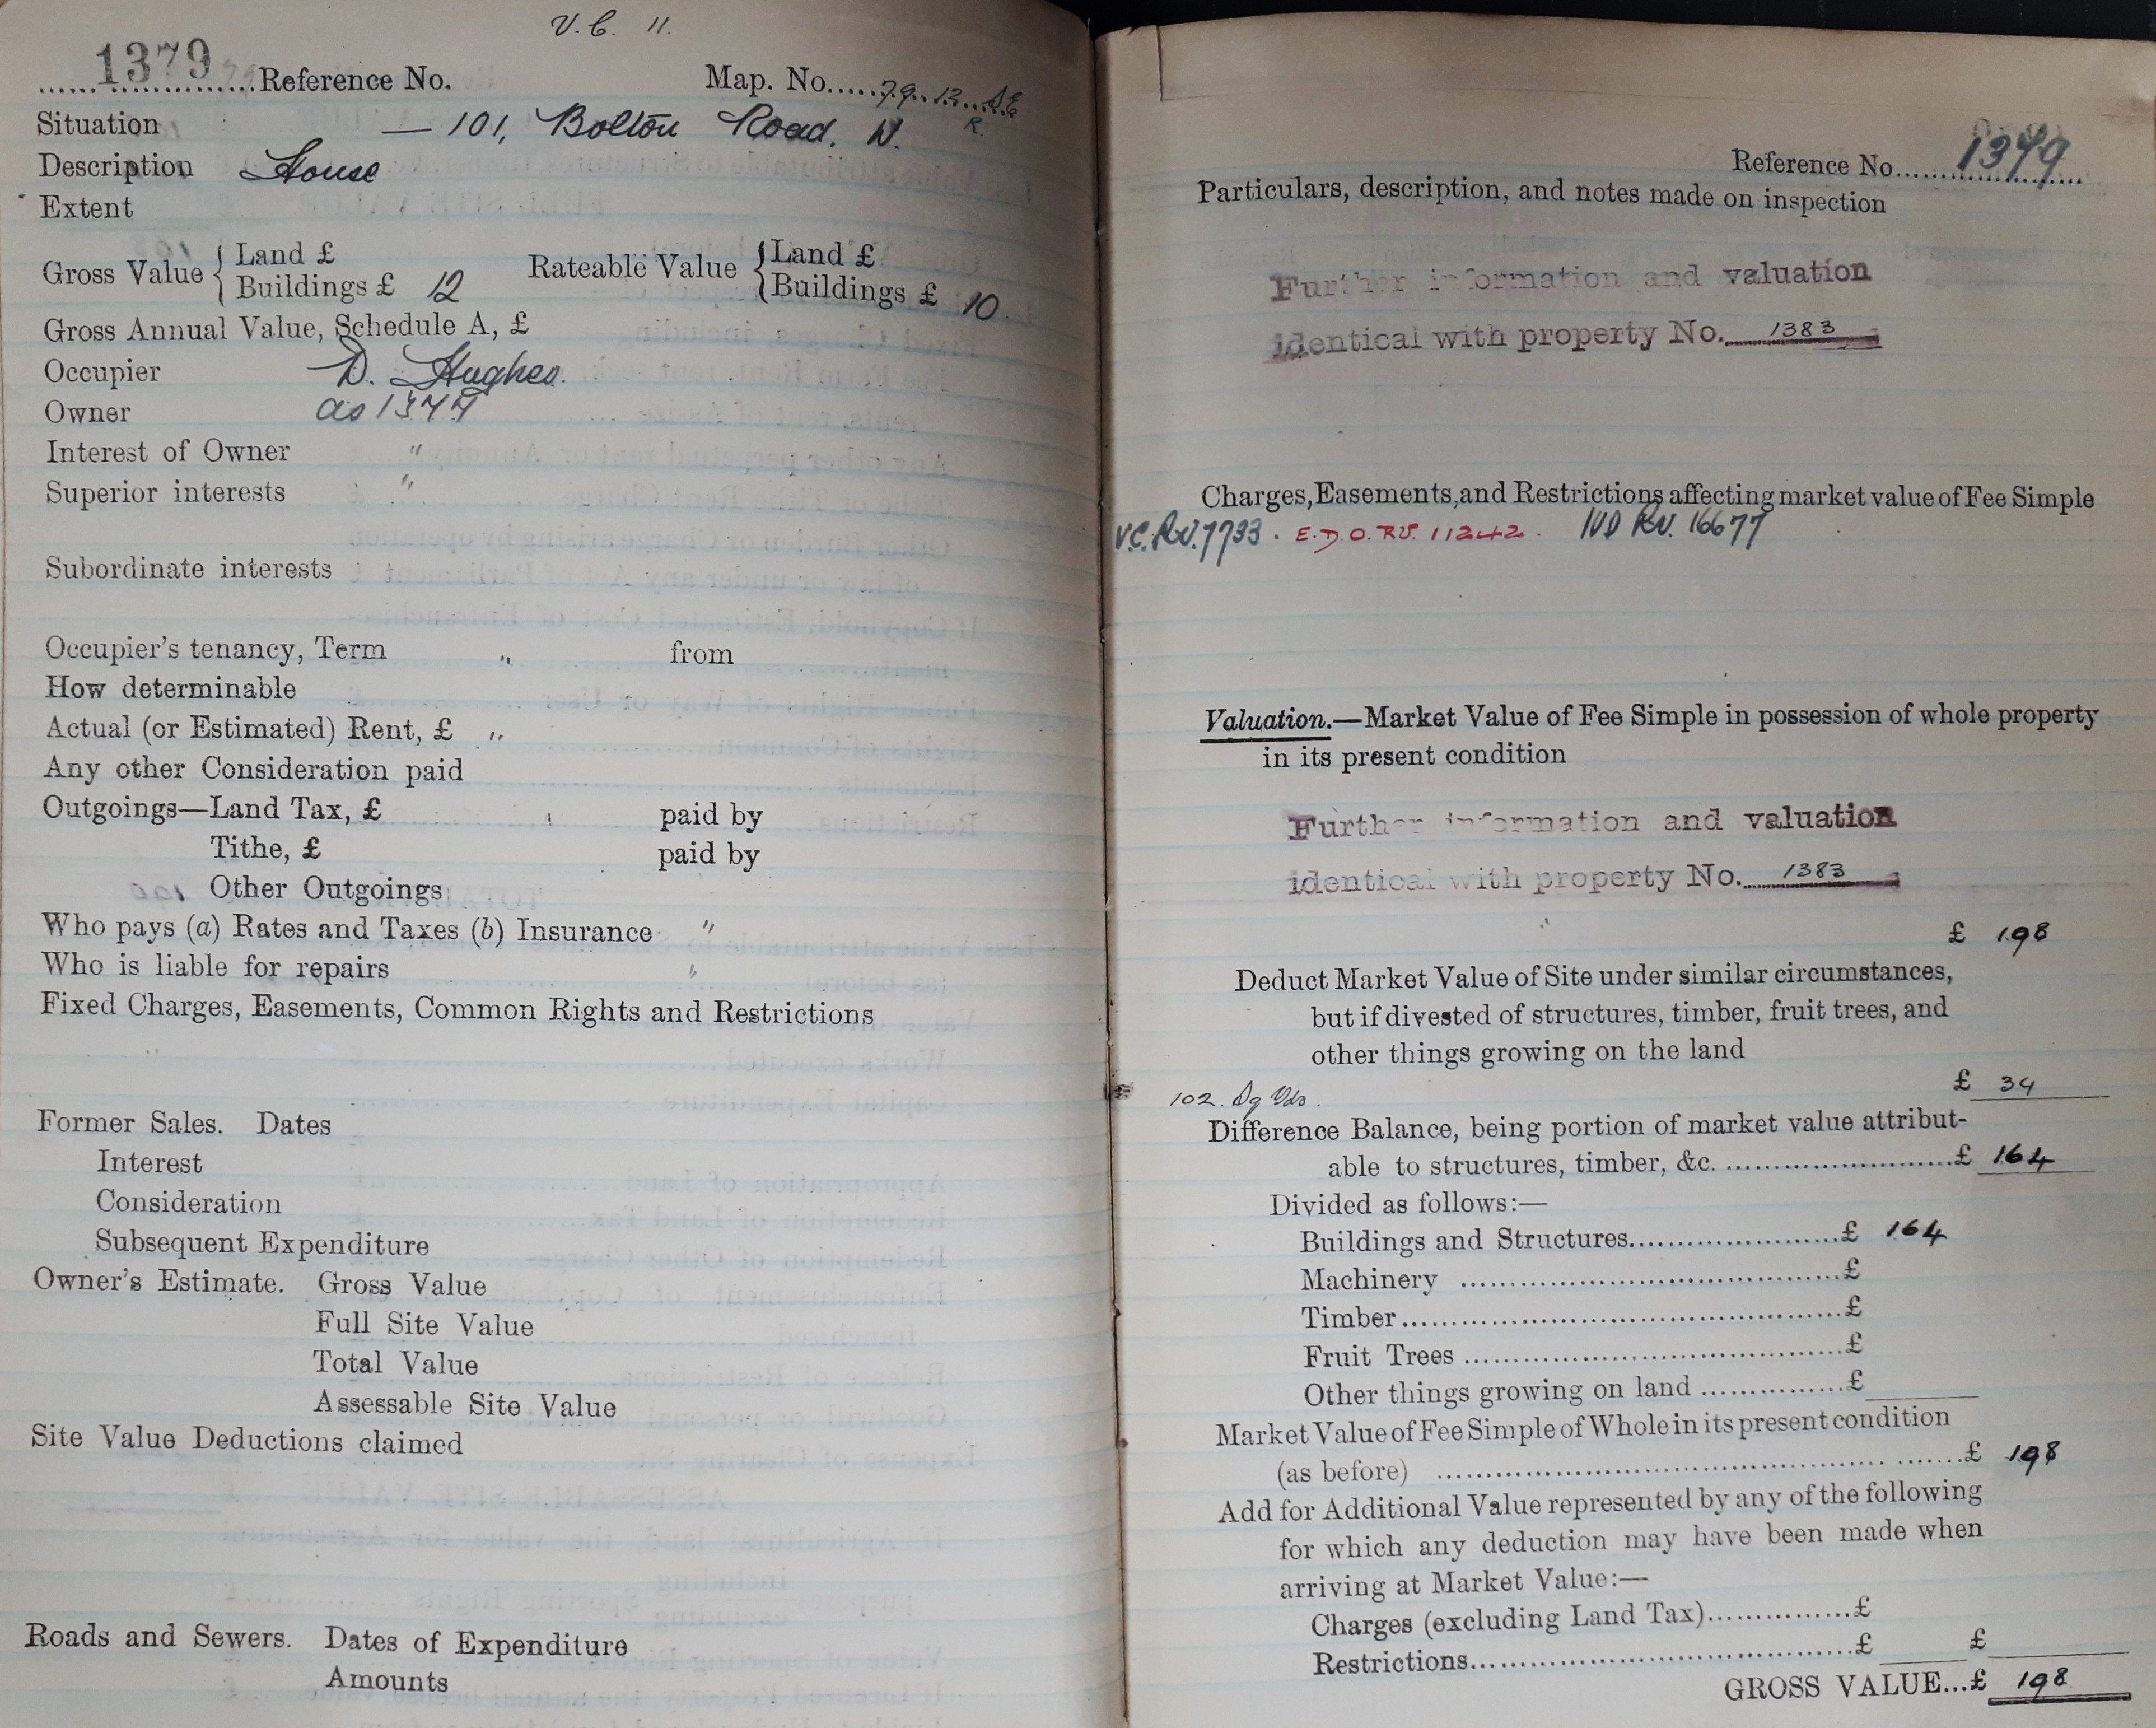 V.C. 11.
1379 Reference No. Map. No. 79. 13. S.E.
R.
Situation — 101, Bolton Road. N.
Description House
Extent
Gross Value { Land £ Rateable Value { Land £
Buildings £ 12 Buildings £ 10.
Gross Annual Value, Schedule A, £
Occupier D. Hughes.
Owner as 1377
Interest of Owner "
Superior interests "
Subordinate interests
Occupier's tenancy, Term " from
How determinable
Actual (or Estimated) Rent, £ "
Any other Consideration paid
Outgoings—Land Tax, £ paid by
Tithe, £ paid by
Other Outgoings
Who pays (a) Rates and Taxes (b) Insurance "
Who is liable for repairs "
Fixed Charges, Easements, Common Rights and Restrictions
Former Sales. Dates
Interest
Consideration
Subsequent Expenditure
Owner's Estimate. Gross Value
Full Site Value
Total Value
Assessable Site Value
Site Value Deductions claimed
Roads and Sewers. Dates of Expenditure
Amounts
Reference No. 1379
Particulars, description, and notes made on inspection
Further information and valuation
identical with property No. 1383
Charges, Easements, and Restrictions affecting market value of Fee Simple
V.C. RV. 7733. E.D.O. RV. 11242. IVD RV. 16677
Valuation.—Market Value of Fee Simple in possession of whole property
in its present condition
Further information and valuation
identical with property No. 1383
£ 198
Deduct Market Value of Site under similar circumstances,
but if divested of structures, timber, fruit trees, and
other things growing on the land
£ 34
102. Sq Yds.
Difference Balance, being portion of market value attribut-
able to structures, timber, &c. £ 164
Divided as follows:—
Buildings and Structures £ 164
Machinery £
Timber £
Fruit Trees £
Other things growing on land £
Market Value of Fee Simple of Whole in its present condition
(as before) £ 198
Add for Additional Value represented by any of the following
for which any deduction may have been made when
arriving at Market Value:—
Charges (excluding Land Tax) £
Restrictions £ £
GROSS VALUE...£ 198